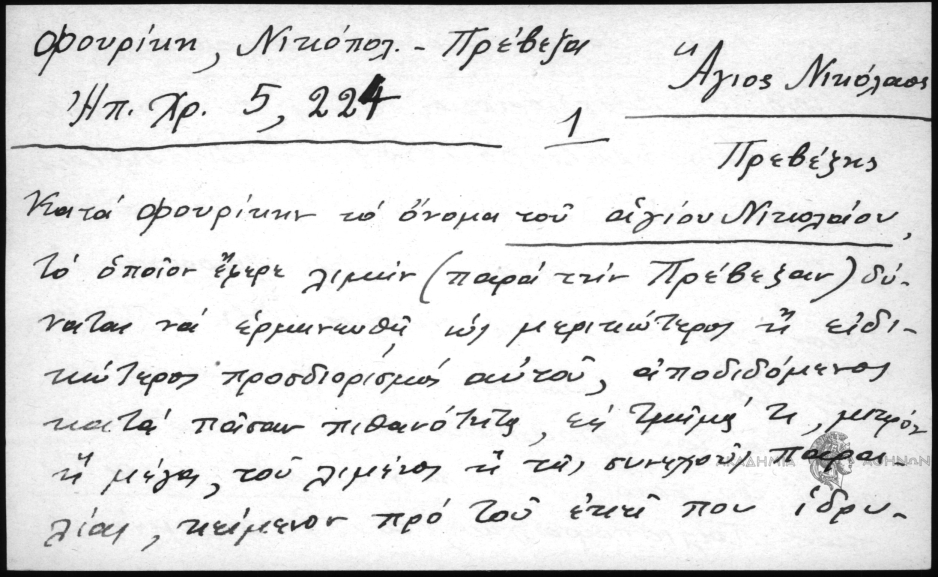 Φουρίκη, Νικόπολ. - Πρέβεζα
Ἠπ. Χρ. 5, 224
1
Ἅγιος Νικόλαος
Πρεβέζης
Κατά Φουρίκην τό ὄνομα τοῦ ἁγίου Νικολάου,
τό ὁποῖον ἔφερε λιμήν (παρά τήν Πρέβεζαν) δύ-
ναται νά ἑρμηνευθῇ ὡς μερικώτερος ἤ εἰδι-
κώτερος προσδιορισμός αὐτοῦ, ἀποδιδόμενος
κατά πᾶσαν πιθανότητα, εἰς τμῆμά τι, μικρόν
ἤ μέγα, τοῦ λιμένος ἤ τῆς συνεχοῦς παρα-
λίας, κείμενον πρό τοῦ ἐκεῖ που ἱδρυ-
ΑΚΑΔΗΜΙΑ ΑΘΗΝΩΝ